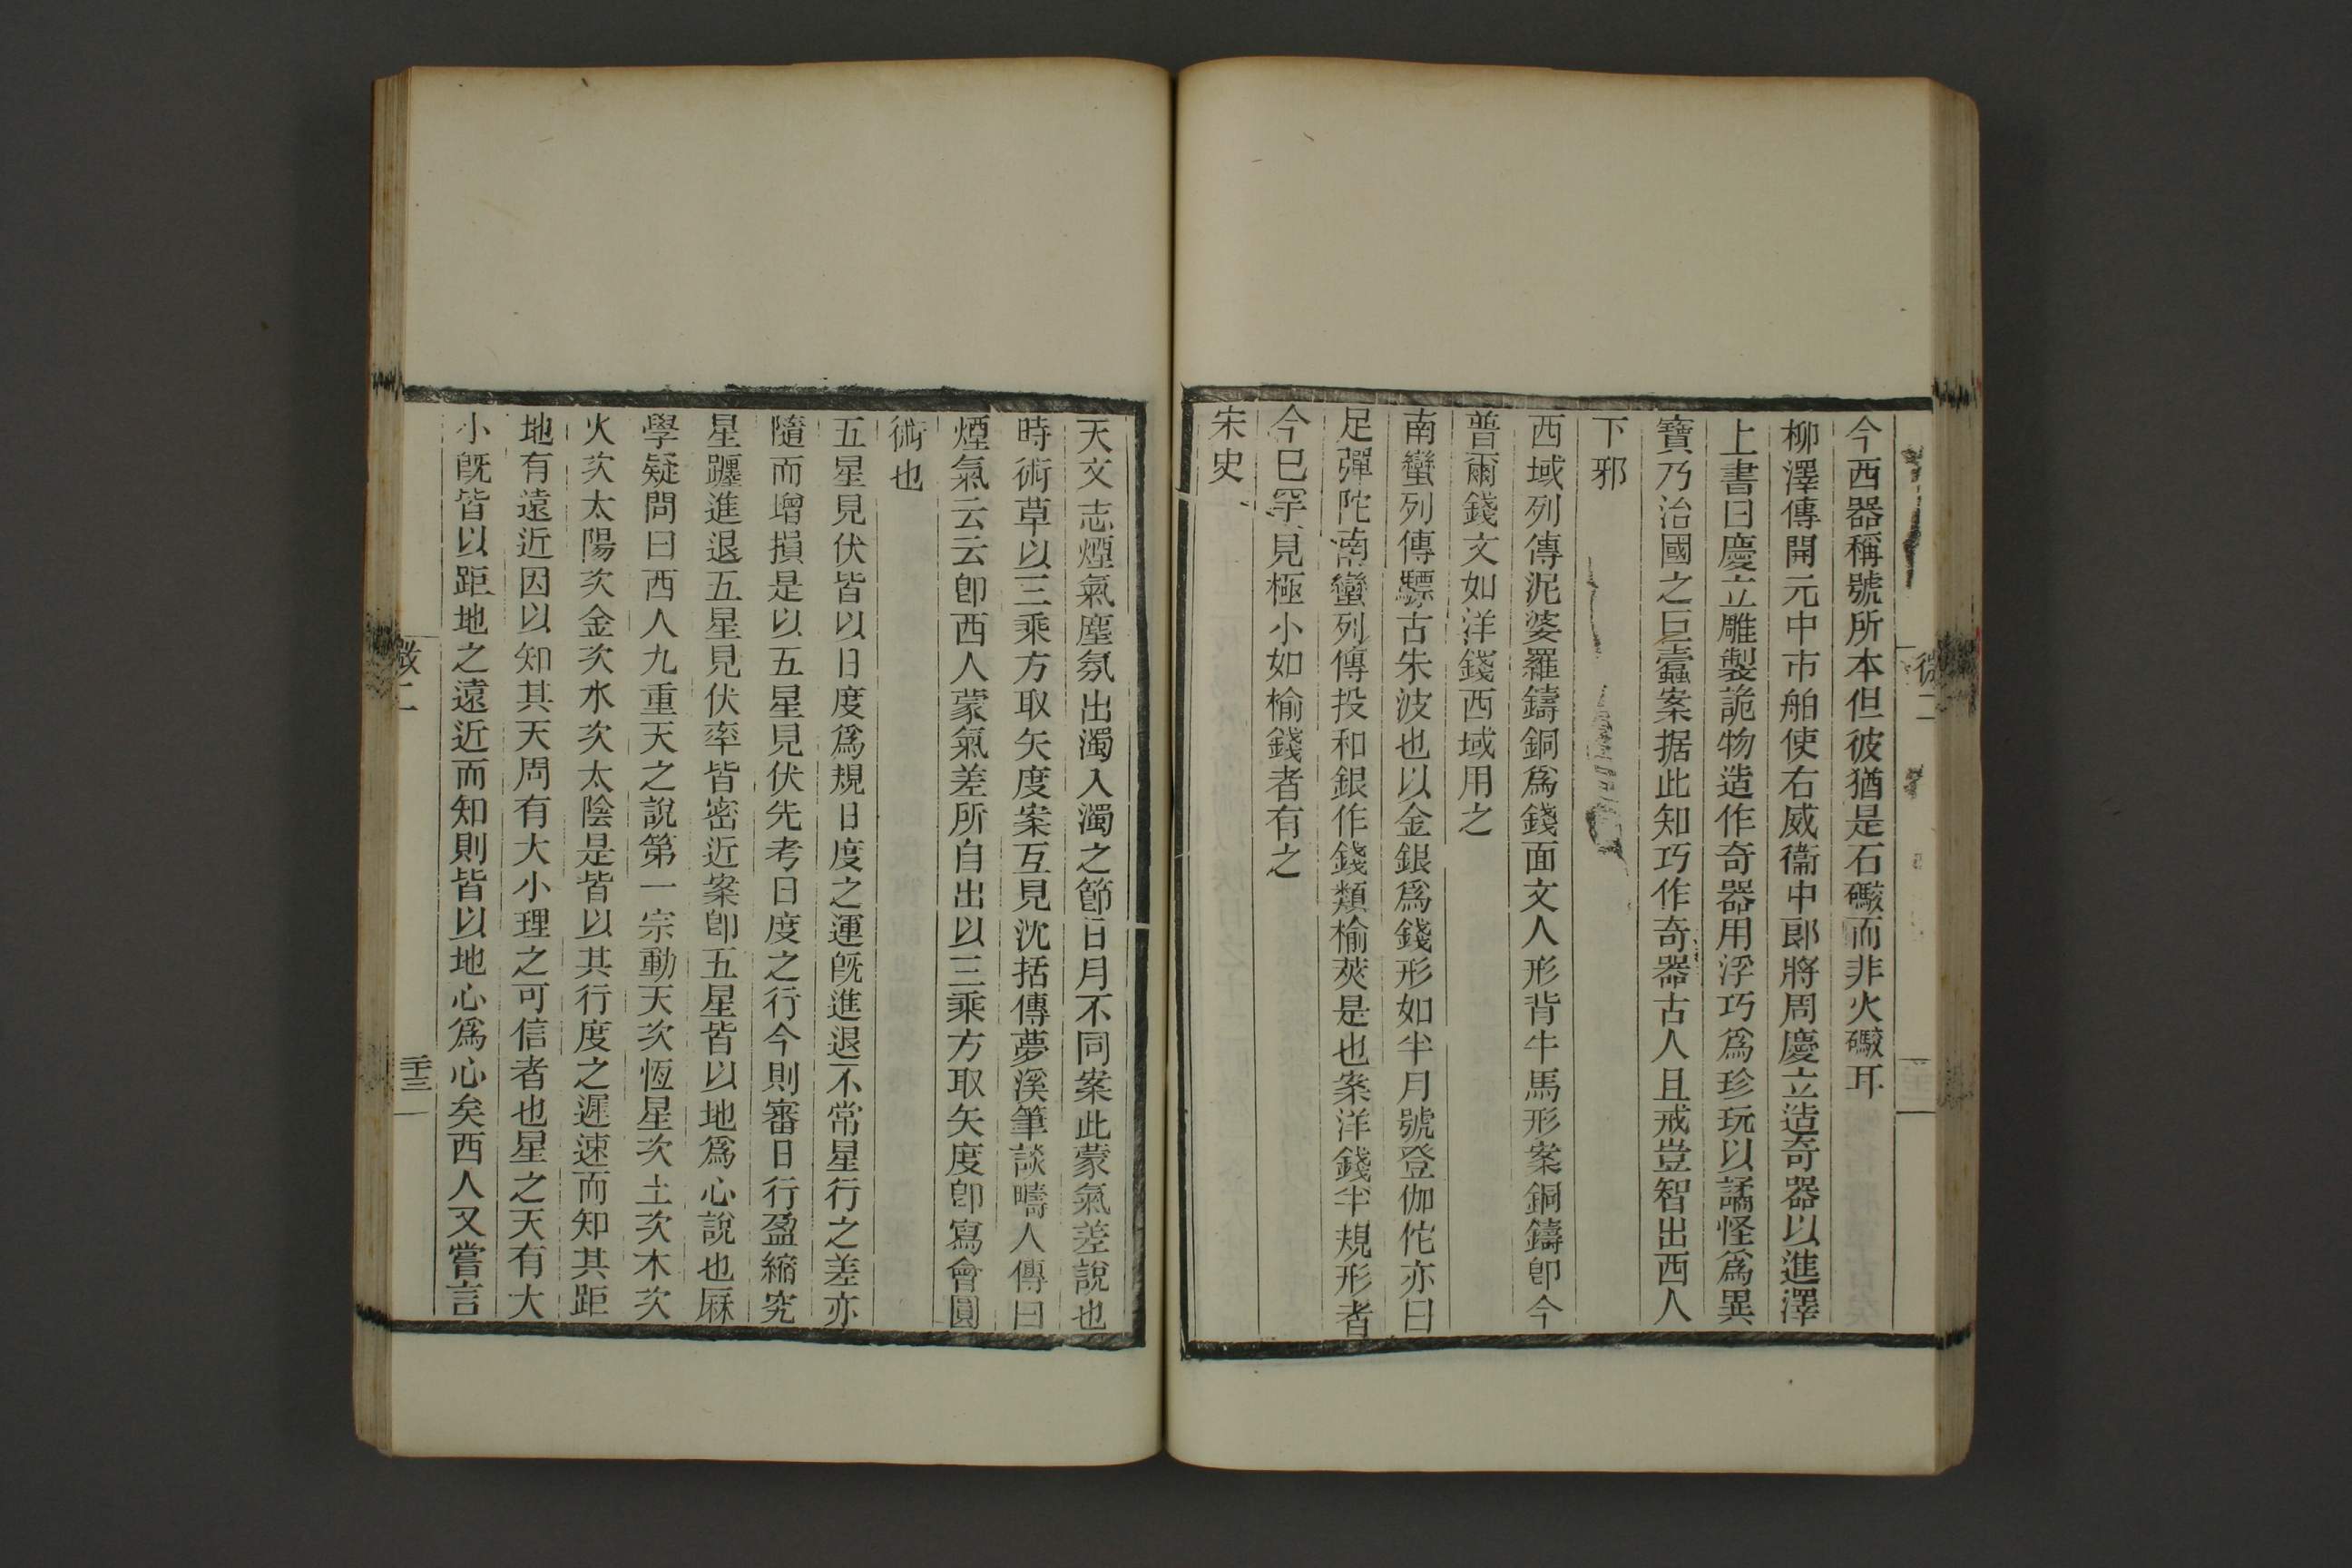 今西器稱號所本但彼猶是石礮而非火礮耳
柳澤傳開元中市舶使右威衞中郎將周慶立造奇器以進澤
上書曰慶立雕製詭物造作奇器用浮巧爲珍玩以譎怪爲異
寶乃治國之巨蠹案据此知巧作奇器古人且戒豈智出西人
下邪
西域列傳泥婆羅鑄銅爲錢面文人形背牛馬形案銅鑄卽今
普爾錢文如洋錢西域用之
南蠻列傳驃古朱波也以金銀爲錢形如半月號登伽佗亦曰
足彈陀南蠻列傳投和銀作錢類榆莢是也案洋錢半規形者
今已罕見極小如榆錢者有之
宋史
天文志煙氣塵氛出濁入濁之節日月不同案此蒙氣差說也
時術草以三乘方取矢度案互見沈括傳夢溪筆談疇人傳曰
煙氣云云卽西人蒙氣差所自出以三乘方取矢度卽寫會圓
術也
五星見伏皆以日度爲規日度之運旣進退不常星行之差亦
隨而增損是以五星見伏先考日度之行今則審日行盈縮究
星躔進退五星見伏率皆密近案卽五星皆以地爲心說也厤
學疑問曰西人九重天之說第一宗動天次恆星次土次木次
火次太陽次金次水次太陰是皆以其行度之遲速而知其距
地有遠近因以知其天周有大小理之可信者也星之天有大
小旣皆以距地之遠近而知則皆以地心爲心矣西人又嘗言
二